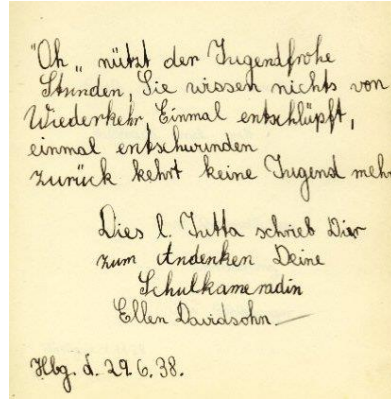 "Oh „ nützt der Jugendfrohe
Stunden, Sie wissen nichts von
Wiederkehr, Einmal entschlüpft,
einmal entschwunden
zurück kehrt keine Jugend mehr
Dies l. Jutta schrieb Dir
zum Andenken Deine
Schulkameradin
Ellen Davidsohn.
Hbg. d. 29.6.38.